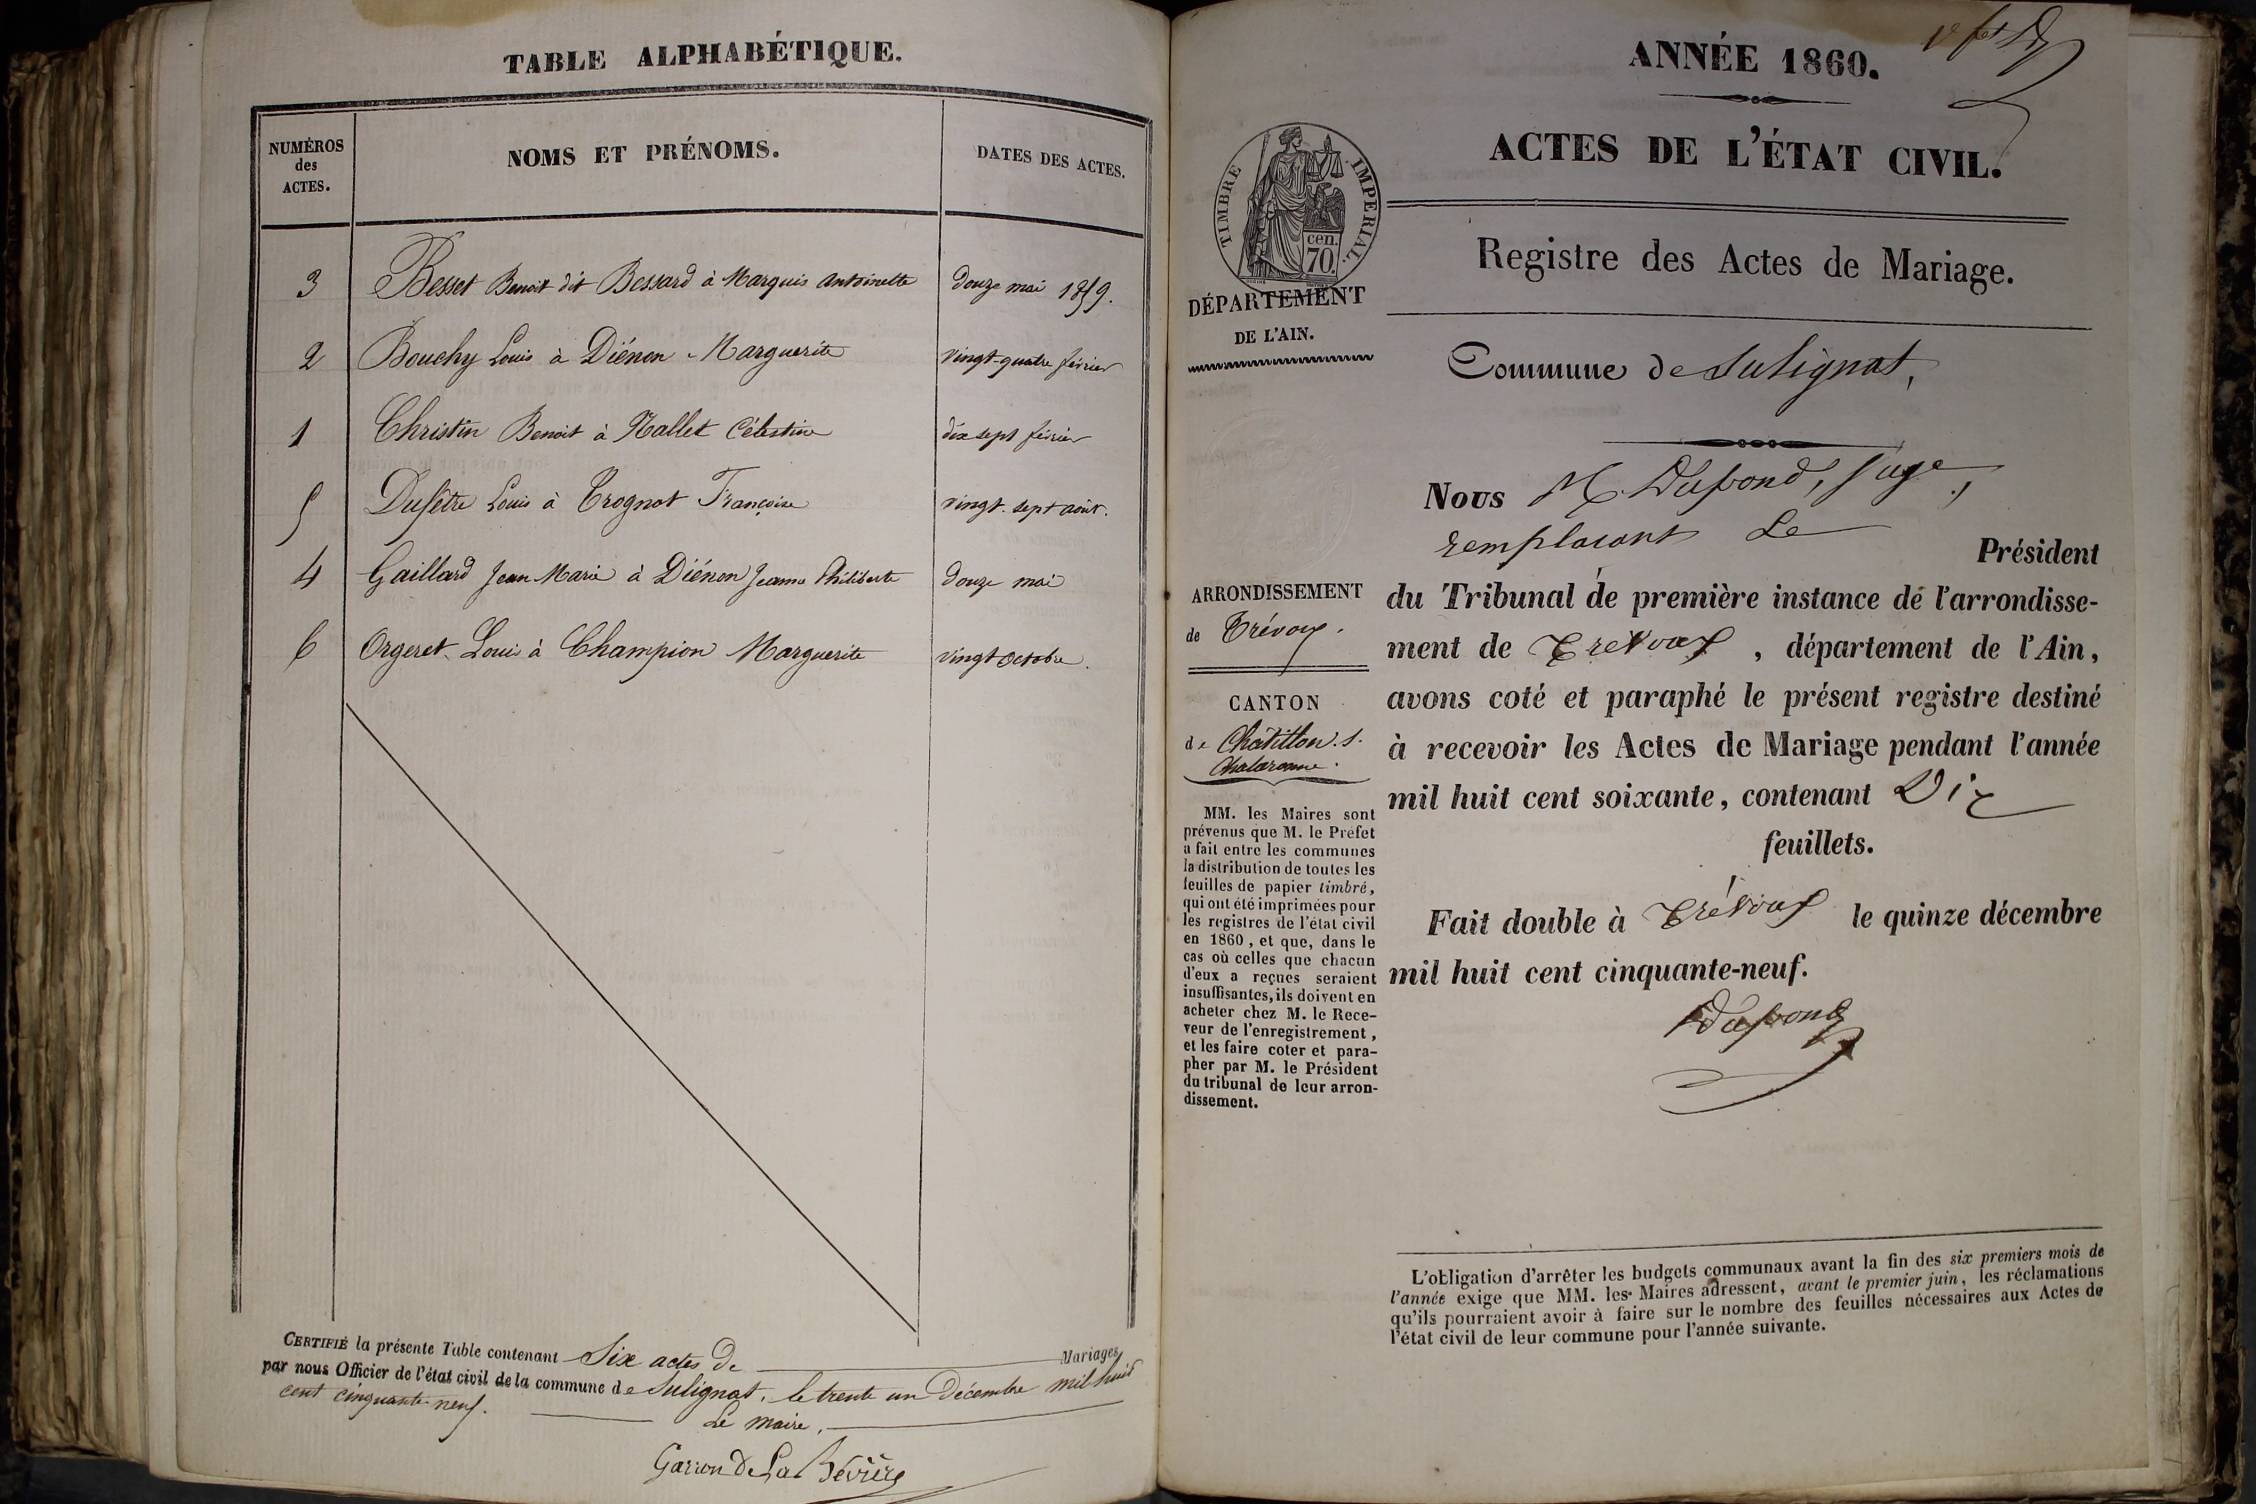 TABLE ALPHABÉTIQUE.
NUMÉROS
des
ACTES.
NOMS ET PRÉNOMS.
DATES DES ACTES.
3 Besset Benoit dit Bessard à Marquis Antoinette douze mai 1859.
2 Bouchy Louis à Diénon Marguerite vingt-quatre février
1 Christin Benoit à Nallet Célestine dix sept février
5 Dufêtre Louis à Trognot Françoise vingt-sept août.
4 Gaillard Jean-Marie à Diénon Jeanne Philiberte douze mai
6 Orgeret Louis à Champion Marguerite vingt octobre.
CERTIFIÉ la présente Table contenant Six actes de Mariages
par nous Officier de l'état civil de la commune de Sulignat, le trente un Décembre mil huit
cent cinquante-neuf.
Le maire,
Garron de La Bévière
ANNÉE 1860.
ACTES DE L'ÉTAT CIVIL.
Registre des Actes de Mariage.
TIMBRE IMPERIAL.
cen.
70.
DÉPARTEMENT
DE L'AIN.
Commune de Sulignat,
Nous M. Dupond, Juge,
remplacant Le
Président
du Tribunal de première instance de l'arrondisse-
ment de Trévoux, département de l'Ain,
avons coté et paraphé le présent registre destiné
à recevoir les Actes de Mariage pendant l'année
mil huit cent soixante, contenant Dix
feuillets.
Fait double à Trévoux le quinze décembre
mil huit cent cinquante-neuf.
Dupond
ARRONDISSEMENT
de Trévoux.
CANTON
de Châtillon. s.
Chalaronne.
MM. les Maires sont
prévenus que M. le Préfet
a fait entre les communes
la distribution de toutes les
feuilles de papier timbré,
qui ont été imprimées pour
les registres de l'état civil
en 1860, et que, dans le
cas où celles que chacun
d'eux a reçues seraient
insuffisantes, ils doivent en
acheter chez M. le Rece-
veur de l'enregistrement,
et les faire coter et para-
pher par M. le Président
du tribunal de leur arron-
dissement.
L'obligation d'arrêter les budgets communaux avant la fin des six premiers mois de
l'année exige que MM. les Maires adressent, avant le premier juin, les réclamations
qu'ils pourraient avoir à faire sur le nombre des feuilles nécessaires aux Actes de
l'état civil de leur commune pour l'année suivante.